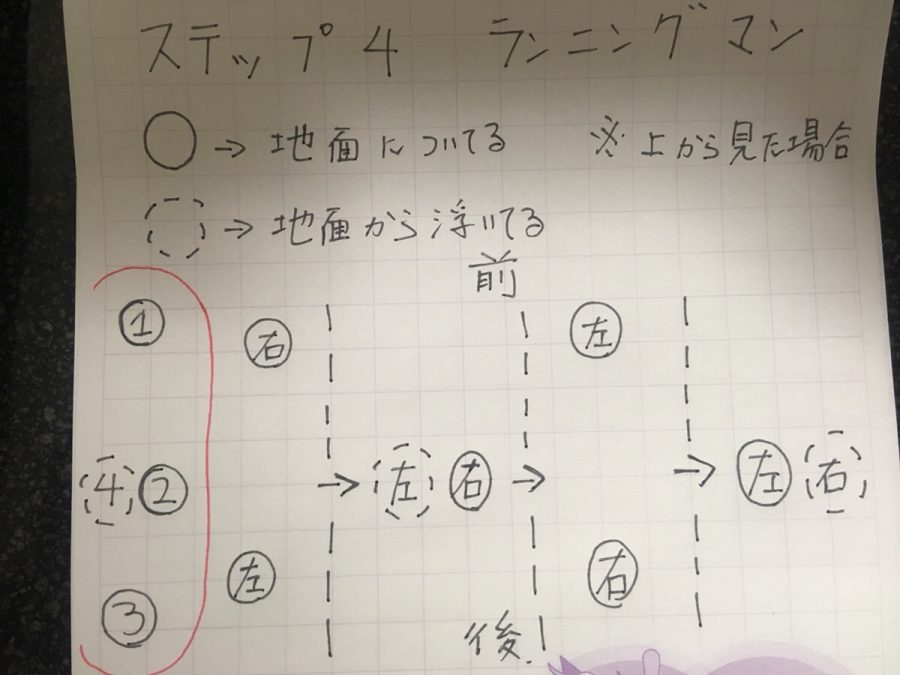 ステップ4 ランニングマン
○→地面についてる ※上から見た場合
◌→地面から浮いてる
前
① 右 左
4 ② → 左 右 → → 左 右
③ 左 右
後